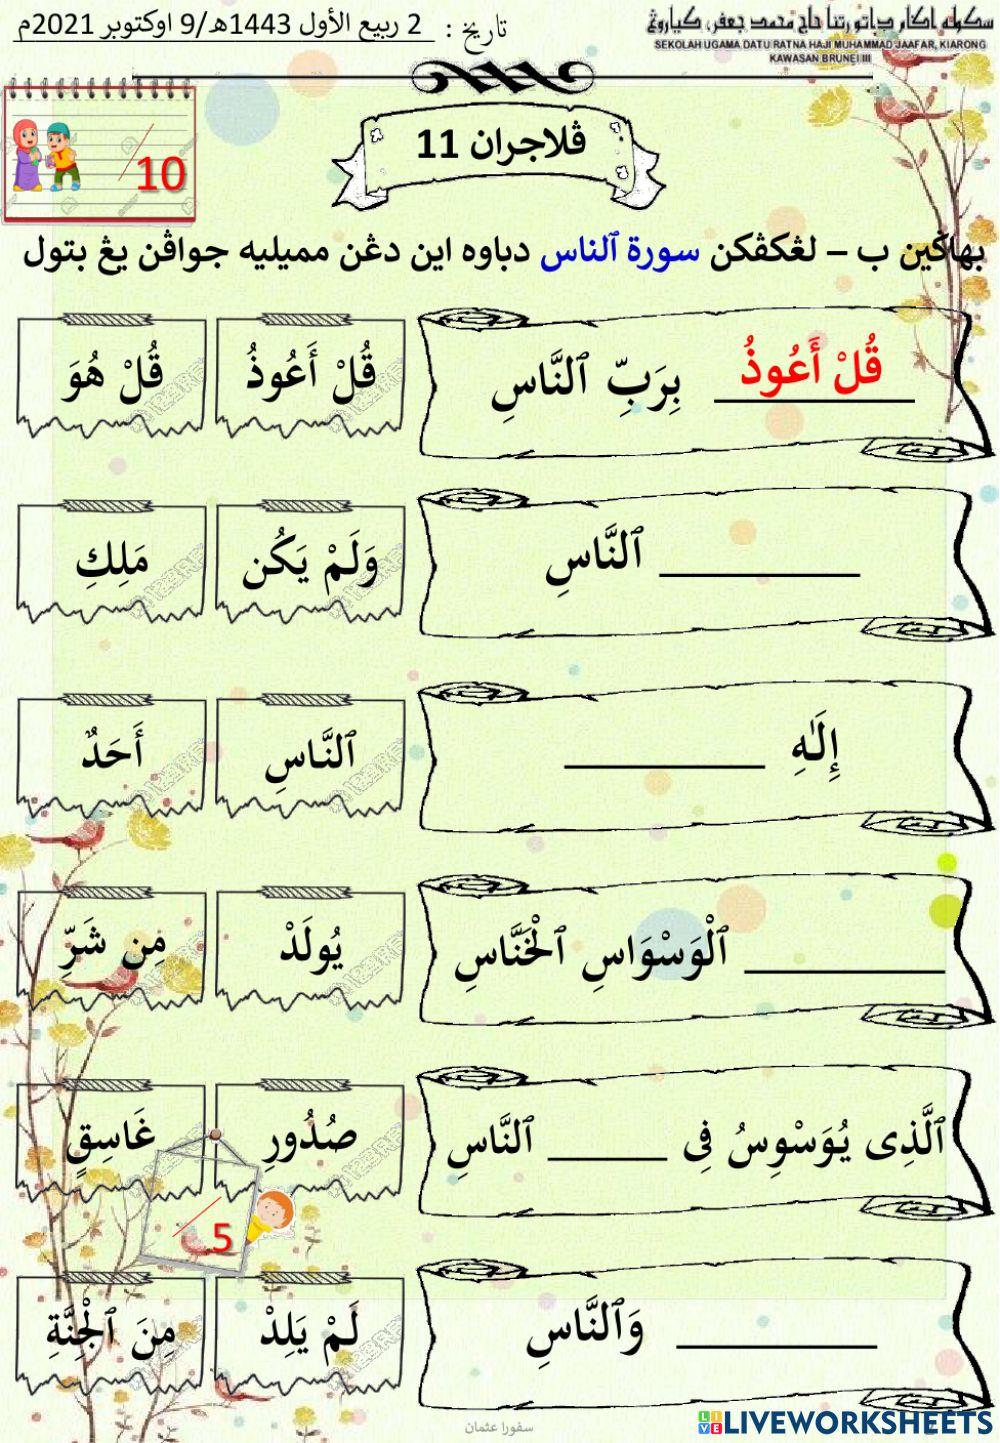 سكوله اݢام داتو رتنا حاج محمد جعفر، كياروڠ
SEKOLAH UGAMA DATU RATNA HAJI MUHAMMAD JAAFAR, KIARONG
KAWASAN BRUNEI III
تاريخ : 2 ربيع الأول 1443هـ/9 اوكتوبر 2021م
10
ڤلاجران 11
بهاݢين ب – لڠكڤكن سورة ٱلناس دباوه اين دڠن ممیليه جواڤن يڠ بتول
قُلْ أَعُوذُ بِرَبِّ ٱلنَّاسِ
قُلْ أَعُوذُ
قُلْ هُوَ
__________ ٱلنَّاسِ
وَلَمْ يَكُن
مَلِكِ
إِلَـٰهِ __________
ٱلنَّاسِ
أَحَدٌ
__________ ٱلْوَسْوَاسِ ٱلْخَنَّاسِ
يُولَدْ
مِن شَرِّ
ٱلَّذِى يُوَسْوِسُ فِى ______ ٱلنَّاسِ
صُدُورِ
غَاسِقٍ
5
__________ وَٱلنَّاسِ
لَمْ يَلِدْ
مِنَ ٱلْجِنَّةِ
سفورا عثمان
LIVEWORKSHEETS